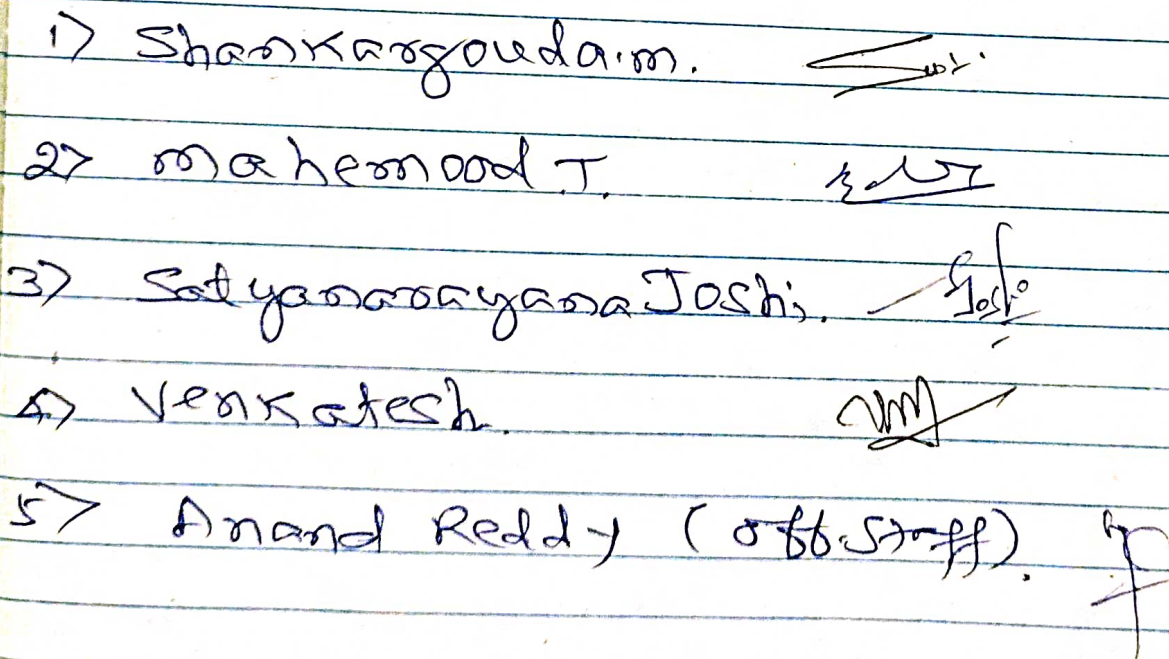 1) Shankargouda.m.
2) mahemood.T.
3) Satyanarayana Joshi.
4) Venkatesh.
5) Anand Reddy (off.Staff).